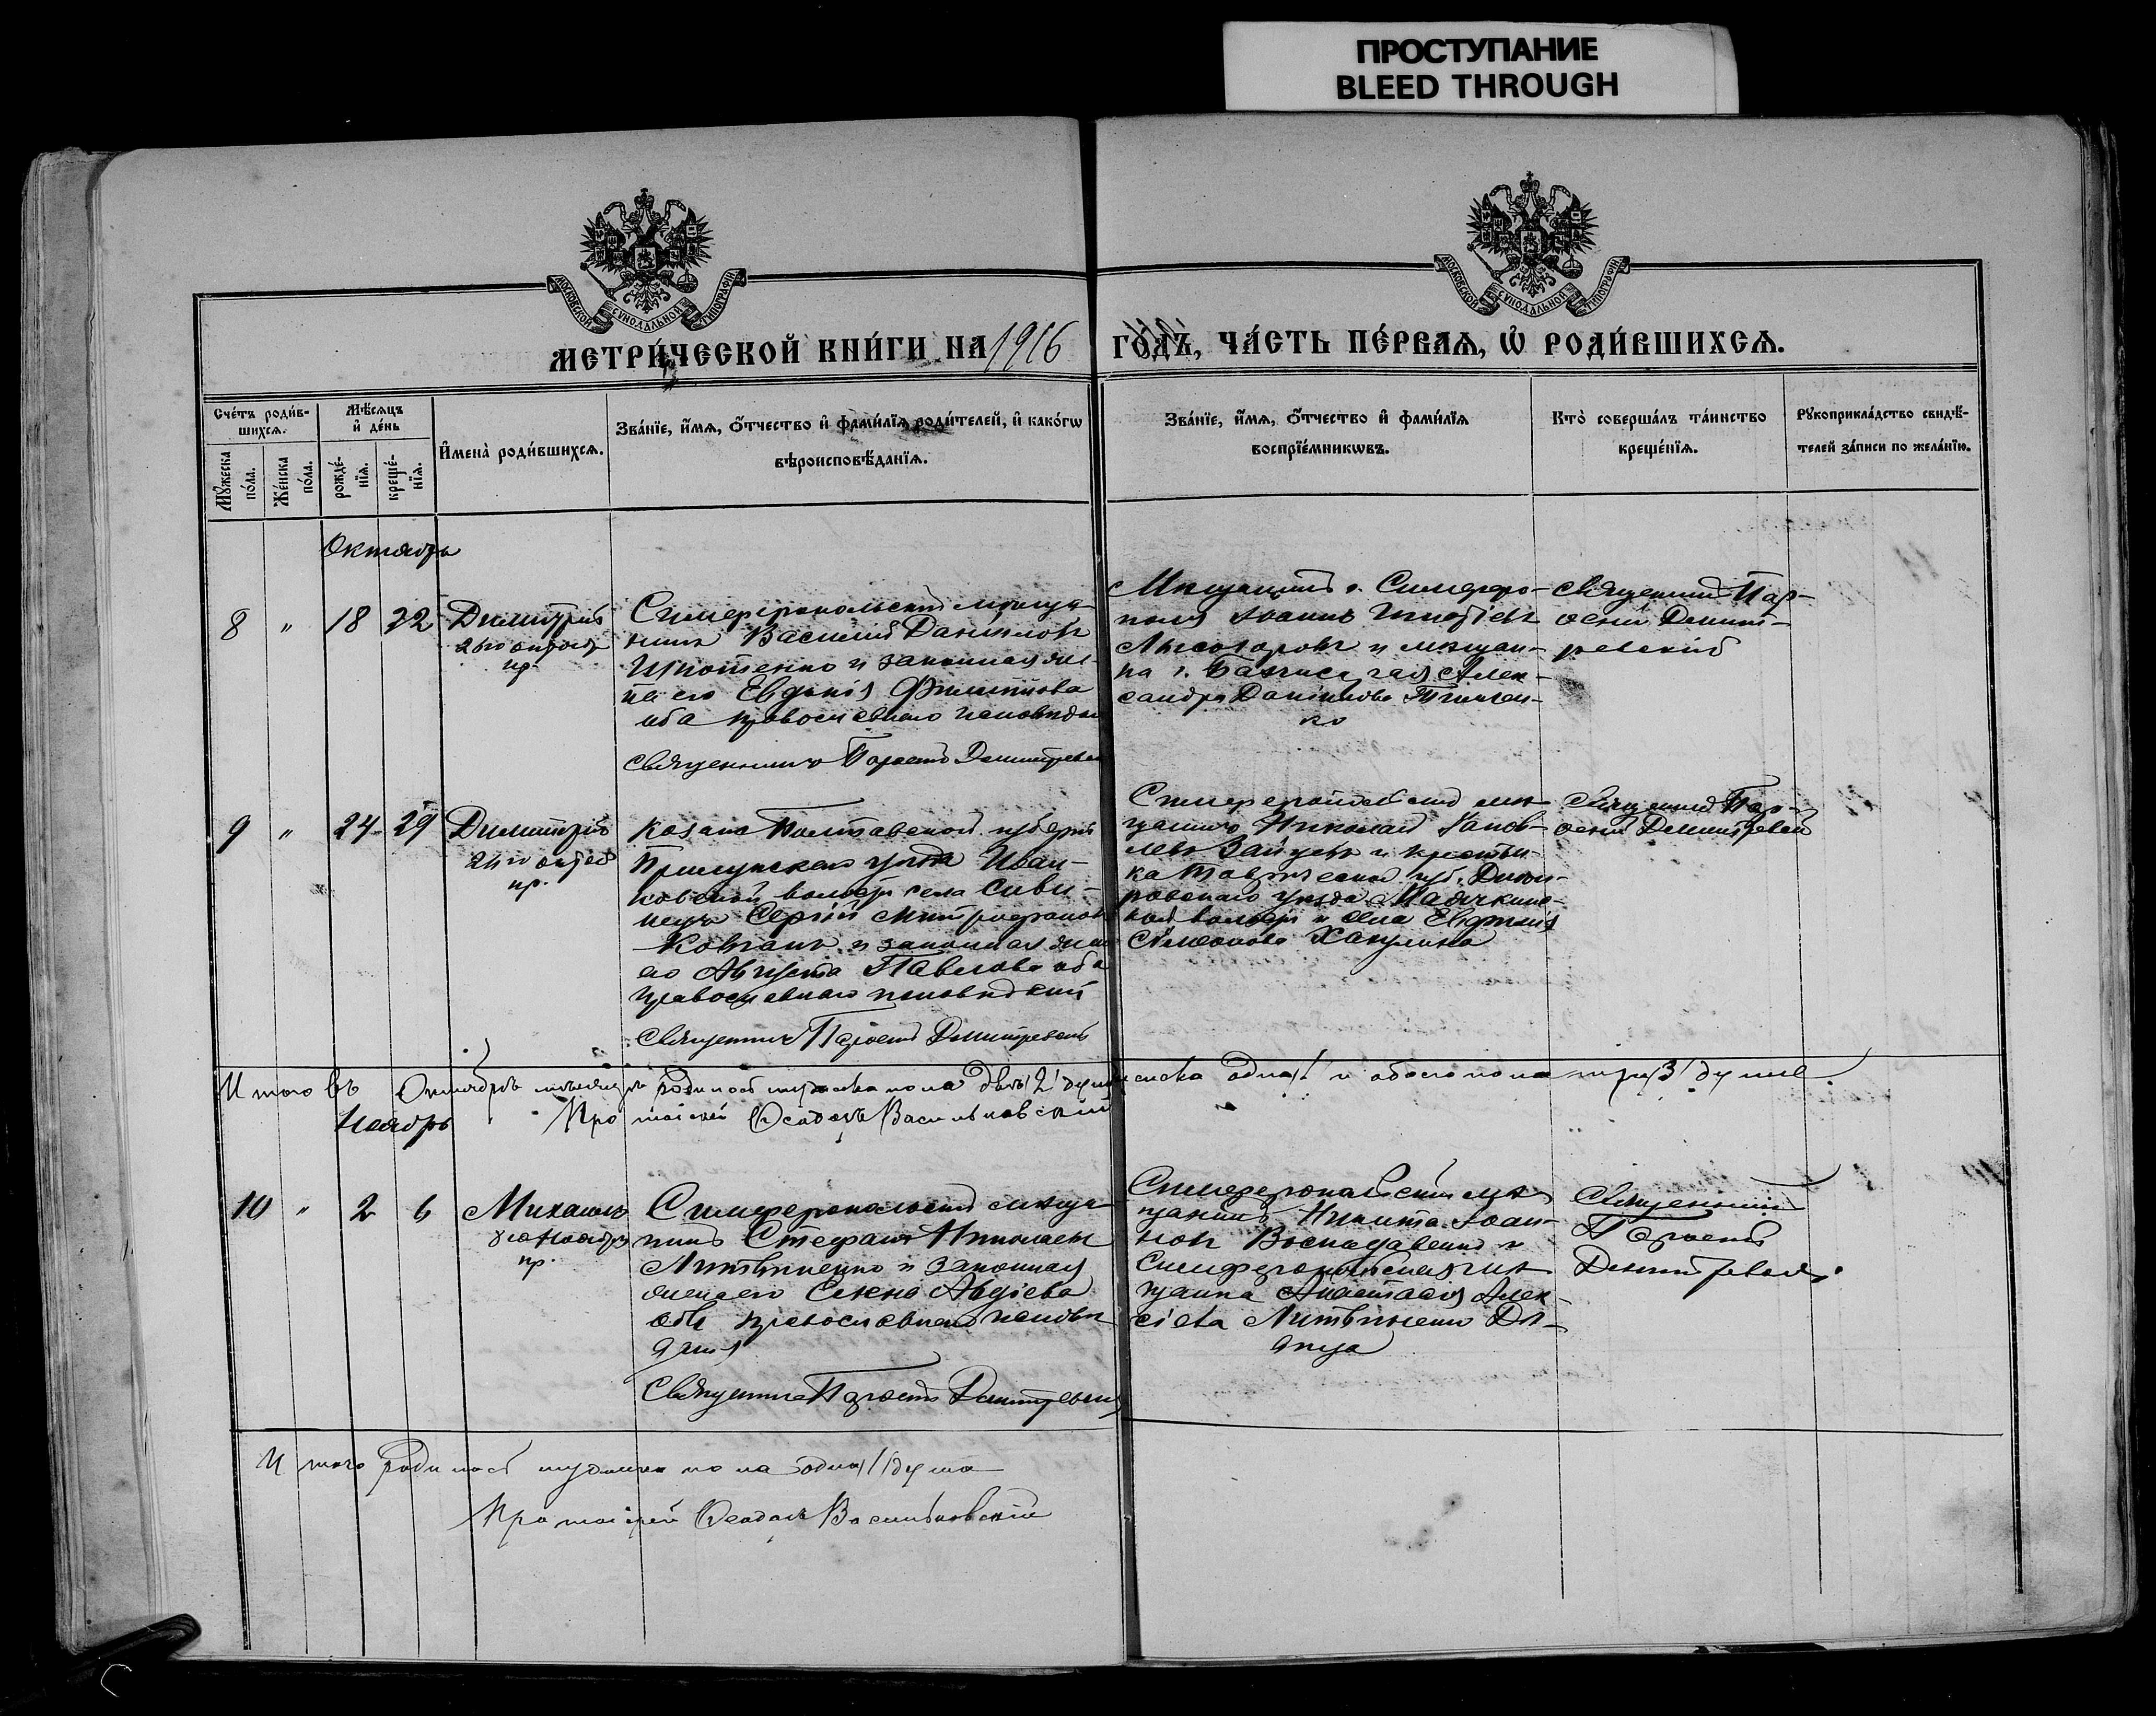 ПРОСТУПАНИЕ
BLEED THROUGH
МОСКОВСКОЙ СѴНОДАЛЬНОЙ ТИПОГРАФІИ
МОСКОВСКОЙ СѴНОДАЛЬНОЙ ТИПОГРАФІИ
МЕТРИ́ЧЕСКОЙ КНИ́ГИ НА 1916 ГО́ДЪ, ЧА́СТЬ ПЕ́РВАЯ, Ѡ҆ РОДИ́ВШИХСЯ.
Сче́тъ роди́в-
шихся.
Мꙋ́жеска по́ла.
Же́нска по́ла.
Мѣ́сяцъ
и҆ де́нь
рожде́-
нїя.
креще́-
нїя.
И҆мена̀ роди́вшихся.
Зва́нїе, и҆́мя, ѻ҆́тчество и҆ фами́лїя роди́телей, и҆ како́гѡ
вѣроисповѣ́данїя.
Зва́нїе, и҆́мя, ѻ҆́тчество и҆ фами́лїя
воспрїе́мникѡвъ.
Кто̀ соверша́лъ та́инство
креще́нїя.
Рꙋкоприкла́дство свидѣ́-
телей за́писи по жела́нїю.
Октябрь
8 " 18 22 Димитрій
26го октяб
пр.
Симферопольскій мѣща-
нинъ Василій Даниловъ
и законная же-
на его Евдокія Филиппова
оба православнаго исповѣдан
Священникъ Парѳеній
Мѣщанинъ г. Симферо-
поля Іоаннъ
и мѣщан-
ка г. Бахчисарая Алек-
сандра Данилова
ко
Священникъ Пар-
ѳеній
9 " 24 29 Димитрій
26го октяб
пр.
Козакъ Полтавской губерн
Прилукскаго уѣзда Иван-
ковской волости села
Сергій Митрофановъ
и законная жена
его Августа Павлова оба
православнаго исповѣданія
Священникъ Парѳеній
Симферопольскій мѣ-
щанинъ Николай Яков-
левъ Зайцевъ и крестьян-
ка Таврической губ. Днѣп-
ровскаго уѣзда
волости и села Евдокія
Священникъ Пар-
ѳеній
Итого въ Октябрѣ мѣсяцѣ родилось мужска пола двѣ /2/ души женска одна /1/ и обоего пола три /3/ души.
Протоіерей Ѳеодоръ Васильковскій
Ноябрь
10 " 2 6 Михаилъ
8го Ноября
пр.
Симферопольскій мѣща-
нинъ Стефанъ Николаевъ
Литвиненко и законная
жена его
оба православнаго исповѣ-
данія
Священникъ Парѳеній
Симферопольскій мѣ-
щанинъ Никита Іоан-
новъ и
Симферопольская мѣ-
щанка Анастасія Алек-
сіева Литвиненко Дѣ-
вица
Священникъ
Парѳеній
Итого родилось мужска пола одна /1/ душа
Протоіерей Ѳеодоръ Васильковскій